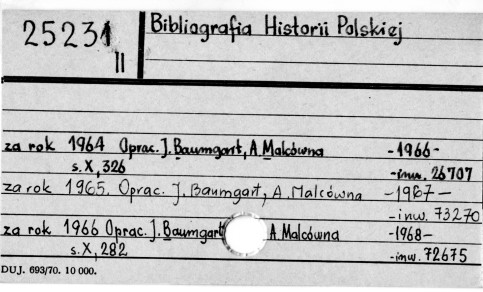 25231
II
Bibliografia Historii Polskiej
za rok 1964 Oprac. J. Baumgart, A. Malcówna -1966-
s. X, 326 -inw. 26707
za rok 1965. Oprac. J. Baumgart, A. Malcówna -1967-
-inw. 73270
za rok 1966 Oprac. J. Baumgart A. Malcówna -1968-
s. X, 282 -inw. 72675
DUJ. 693/70. 10 000.